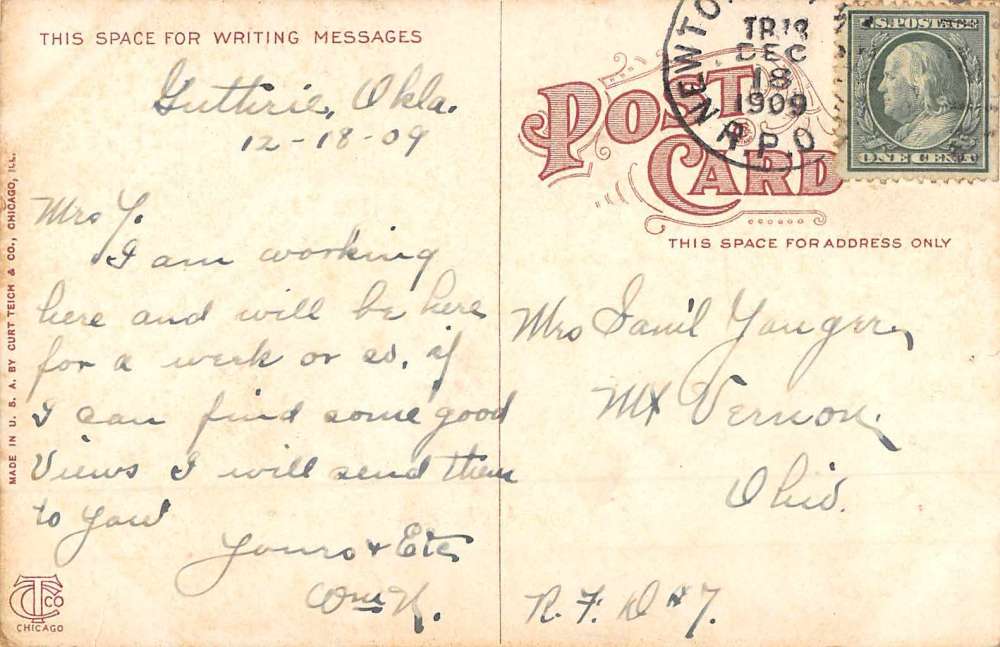 THIS SPACE FOR WRITING MESSAGES
Guthrie, Okla.
12-18-09
Mrs Y.
I am working
here and will be here
for a week or so, if
I can find some good
Views I will send them
to you
Yours & Etc
Wm K.
MADE IN U. S. A. BY CURT TEICH & CO., CHICAGO, ILL.
CTCO
CHICAGO
POST CARD
THIS SPACE FOR ADDRESS ONLY
NEWTO
R.P.O
TR 18
DEC
18
1909
U.S. POSTAGE
ONE CENT
Mrs Sam'l Yauger,
Mt Vernon,
Ohio.
R. F. D #7.